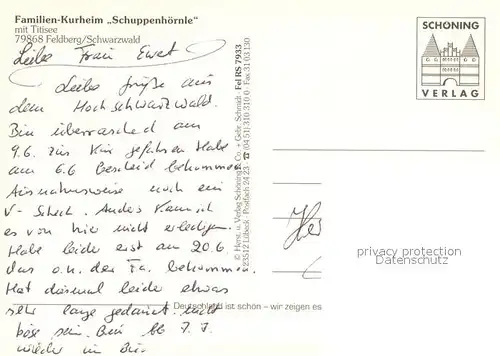 Familien-Kurheim „Schuppenhörnle"
mit Titisee
79868 Feldberg/Schwarzwald
Liebe Frau Ewet
Liebe Grüße aus
dem Hochschwarzwald.
Bin überraschend am
9.6. zur Kur gefahren Habe
am 6.6 Bescheid bekommen
Ausnahmsweise noch ein
V-Scheck. Anders kann ich
es von hier nicht erledigen
Habe leider erst am 20.6.
das o.k. der Fa. bekommen.
Hat diesmal leider etwas
sehr lange gedauert. nicht
böse sein. Bin bb 7.7.
wieder im
SCHÖNING
VERLAG
Fel RS 7933
© Herst. u. Verlag Schöning & Co. + Gebr. Schmidt
23512 Lübeck · Postfach 24 23 · ☎ (04 51) 310 310 0 · Fax 31 03 130
Deutschland ist schön – wir zeigen es
privacy protection
Datenschutz